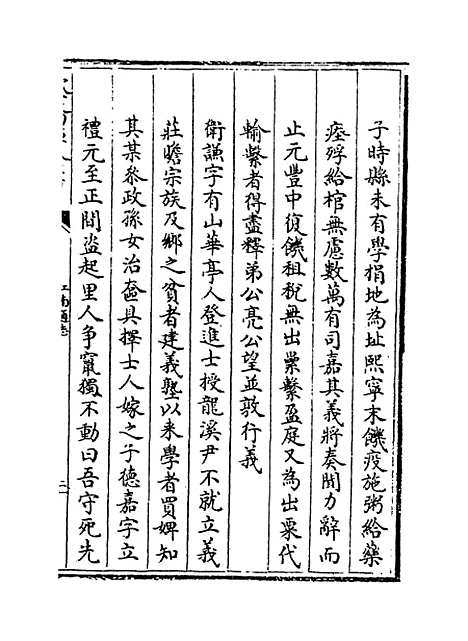 子時縣未有學捐地為址熙寧末饑疫施粥給藥
瘞殍給棺無慮數萬有司嘉其義將奏聞力辭而
止元豐中復饑租稅無出纍繫盈庭又為出粟代
輸繫者得盡釋弟公亮公望並敦行義
衛謙字有山華亭人登進士授龍溪尹不就立義
莊贍宗族及鄉之貧者建義塾以来學者買婢知
其某叅政孫女治奩具擇士人嫁之子德嘉字立
禮元至正間盜起里人争竄獨不動曰吾守死先
江南通志